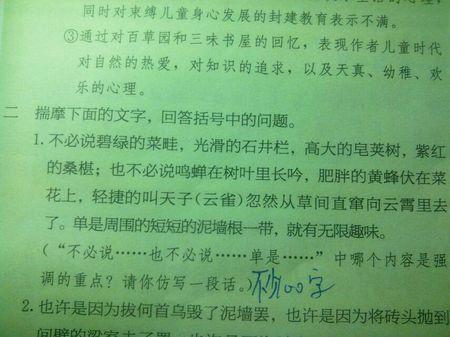 同时对束缚儿童身心发展的封建教育表示不满。
③通过对百草园和三味书屋的回忆，表现作者儿童时代
对自然的热爱，对知识的追求，以及天真、幼稚、欢
乐的心理。
二 揣摩下面的文字，回答括号中的问题。
1.不必说碧绿的菜畦，光滑的石井栏，高大的皂荚树，紫红
的桑椹；也不必说鸣蝉在树叶里长吟，肥胖的黄蜂伏在菜
花上，轻捷的叫天子(云雀)忽然从草间直窜向云霄里去
了。单是周围的短短的泥墙根一带，就有无限趣味。
(“不必说……也不必说……单是……”中哪个内容是强
调的重点？请你仿写一段话。)
00字
2.也许是因为拔何首乌毁了泥墙罢，也许是因为将砖头抛到
间壁的梁家去了罢，也许是因